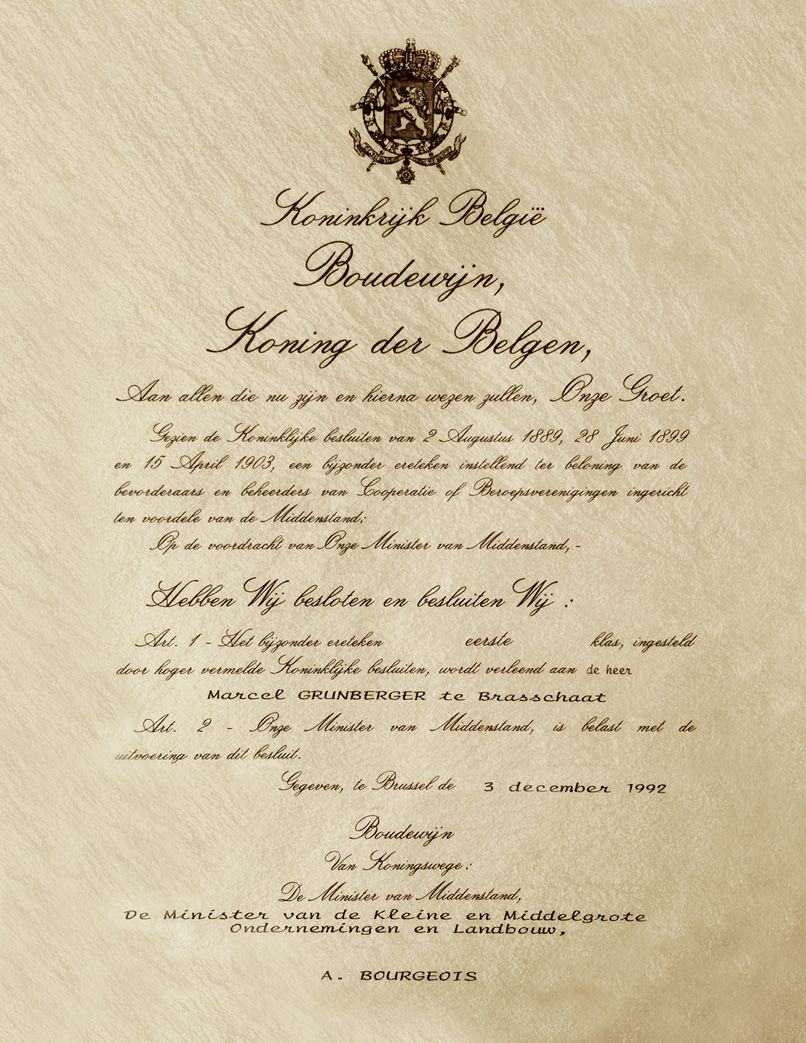 Koninkrijk België
Boudewijn,
Koning der Belgen,
Aan allen die nu zijn en hierna wezen zullen, Onze Groet.
Gezien de Koninklijke besluiten van 2 Augustus 1889, 28 Juni 1899
en 15 April 1903, een bijzonder ereteken instellend ter beloning van de
bevorderaars en beheerders van Cooperatie of Beroepsverenigingen ingericht
ten voordele van de Middenstand;
Op de voordracht van Onze Minister van Middenstand, -
Hebben Wij besloten en besluiten Wij :
Art. 1 - Het bijzonder ereteken eerste klas, ingesteld
door hoger vermelde Koninklijke besluiten, wordt verleend aan de heer
Marcel GRUNBERGER te Brasschaat
Art. 2 - Onze Minister van Middenstand, is belast met de
uitvoering van dit besluit.
Gegeven, te Brussel de 3 december 1992
Boudewijn
Van Koningswege :
De Minister van Middenstand,
De Minister van de Kleine en Middelgrote
Ondernemingen en Landbouw,
A. BOURGEOIS